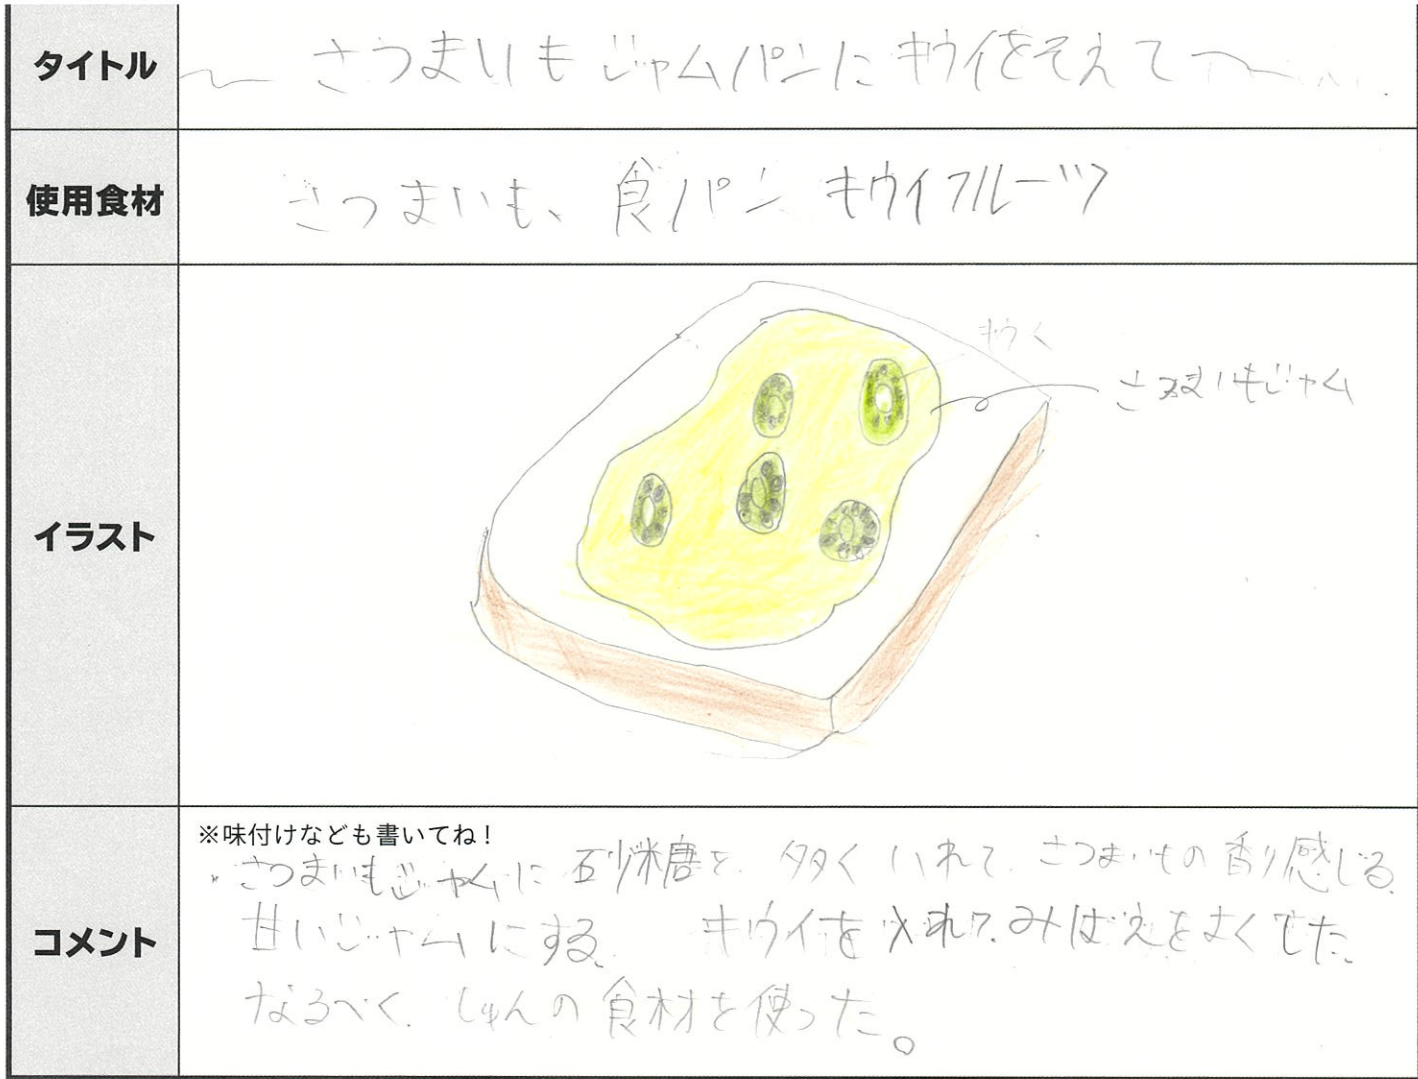 タイトル
〜さつまいもじゃムパンにキウイをそえて〜
使用食材
さつまいも、食パン キウイフルーツ
イラスト
キウイ
さつまいもじャム
コメント
※味付けなども書いてね!
・さつまいもじャムに砂糖を多くいれてさつまいもの香り感じる
甘いじャムにする。キウイを入れて、みばえをよくした。
なるべく、しゅんの食材を使った。